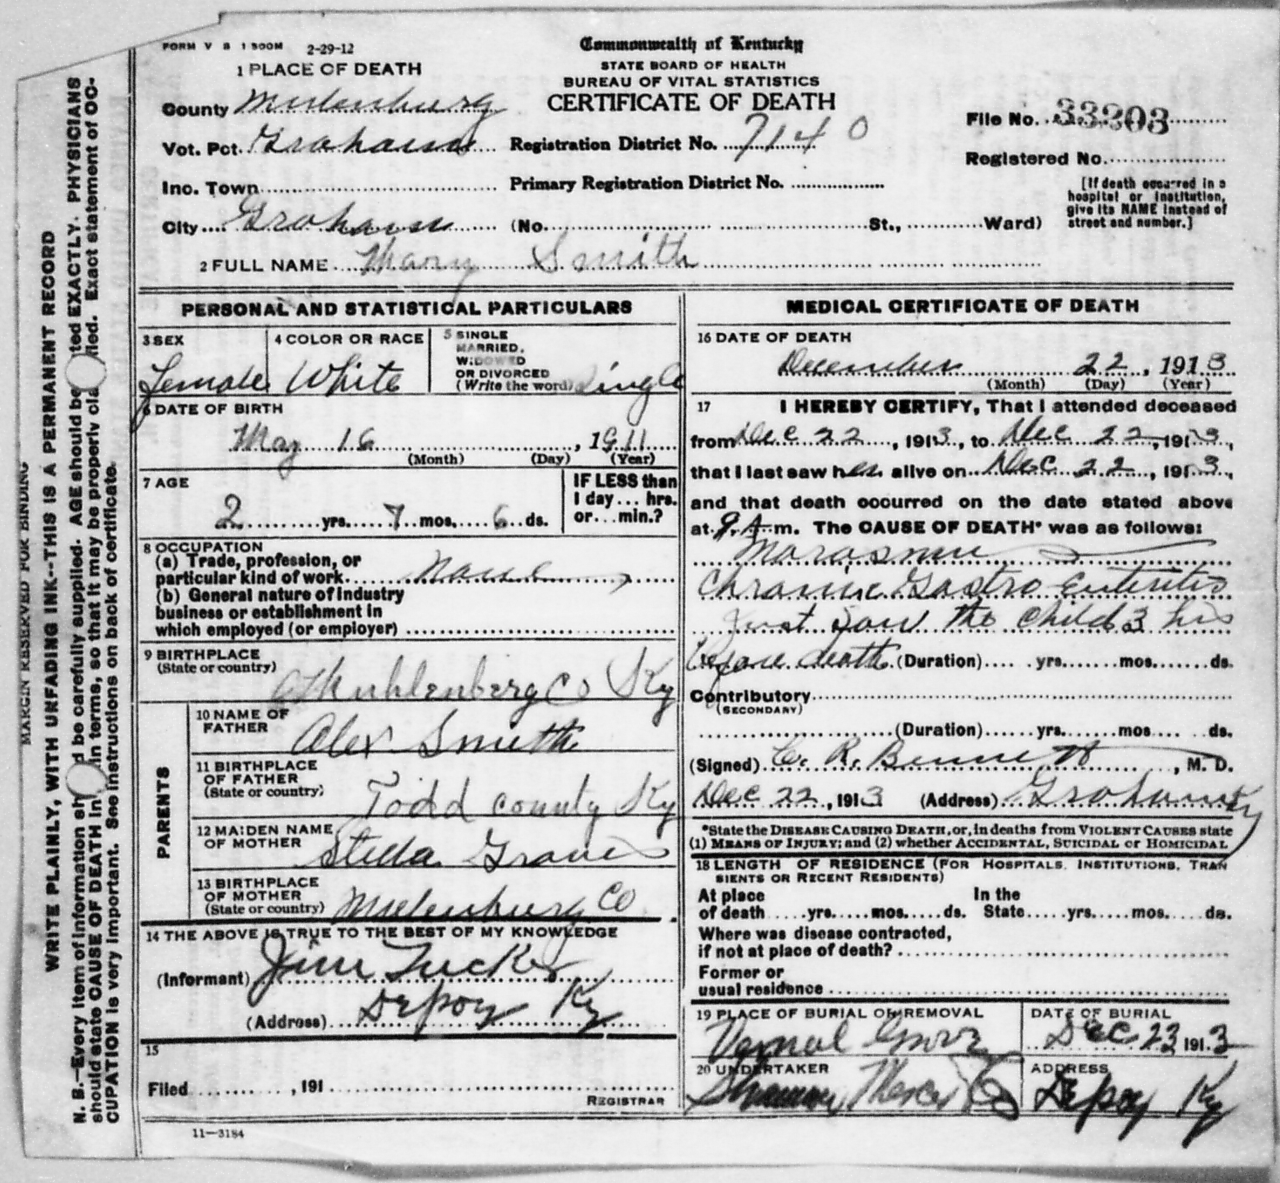 FORM V S 1 500M 2-29-12
Commonwealth of Kentucky
STATE BOARD OF HEALTH
BUREAU OF VITAL STATISTICS
CERTIFICATE OF DEATH
1 PLACE OF DEATH
County Mulenburg
Vot. Pct. Graham Registration District No. 7140
File No. 33303
Registered No.
Inc. Town Primary Registration District No.
[If death occurred in a hospital or institution, give its NAME instead of street and number.]
City Graham (No. St., Ward)
2 FULL NAME Mary Smith
PERSONAL AND STATISTICAL PARTICULARS
3 SEX Female
4 COLOR OR RACE White
5 SINGLE MARRIED, WIDOWED OR DIVORCED (Write the word) Single
6 DATE OF BIRTH
May 16, 1911
(Month) (Day) (Year)
7 AGE
2 yrs. 7 mos. 6 ds.
IF LESS than 1 day ... hrs. or ... min.?
8 OCCUPATION
(a) Trade, profession, or
particular kind of work None
(b) General nature of industry
business or establishment in
which employed (or employer)
9 BIRTHPLACE
(State or country)
Muhlenberg Co Ky
PARENTS
10 NAME OF FATHER Alex Smith
11 BIRTHPLACE OF FATHER (State or country) Todd county Ky
12 MAIDEN NAME OF MOTHER Stella Graves
13 BIRTHPLACE OF MOTHER (State or country) Mulenburg Co
14 THE ABOVE IS TRUE TO THE BEST OF MY KNOWLEDGE
(Informant) Jim Tucker
(Address) Depoy Ky
15
Filed , 191
REGISTRAR
11-3184
MEDICAL CERTIFICATE OF DEATH
16 DATE OF DEATH
December 22, 1913
(Month) (Day) (Year)
17 I HEREBY CERTIFY, That I attended deceased
from Dec 22, 1913, to Dec 22, 1913,
that I last saw her alive on Dec 22, 1913,
and that death occurred on the date stated above
at 9 A m. The CAUSE OF DEATH* was as follows:
Marasmus
Chronic Gastro Enteritis
Just saw the child 3 hrs
before death (Duration) yrs. mos. ds.
Contributory
(SECONDARY)
(Duration) yrs. mos. ds.
(Signed) C. R. Bennett, M. D.
Dec 22, 1913 (Address) Graham Ky
*State the DISEASE CAUSING DEATH, or, in deaths from VIOLENT CAUSES state
(1) MEANS OF INJURY; and (2) whether ACCIDENTAL, SUICIDAL or HOMICIDAL
18 LENGTH OF RESIDENCE (FOR HOSPITALS, INSTITUTIONS, TRAN
SIENTS OR RECENT RESIDENTS)
At place of death yrs. mos. ds. In the State yrs. mos. ds.
Where was disease contracted,
if not at place of death?
Former or
usual residence
19 PLACE OF BURIAL OR REMOVAL
Vernal
DATE OF BURIAL
Dec 23 1913
20 UNDERTAKER
Co
ADDRESS
Depoy Ky
MARGIN RESERVED FOR BINDING
WRITE PLAINLY, WITH UNFADING INK--THIS IS A PERMANENT RECORD
N. B.—Every item of information sh d be carefully supplied. AGE should be ted EXACTLY. PHYSICIANS
should state CAUSE OF DEATH in in terms, so that it may be properly cla fied. Exact statement of OC-
CUPATION is very important. See instructions on back of certificate.